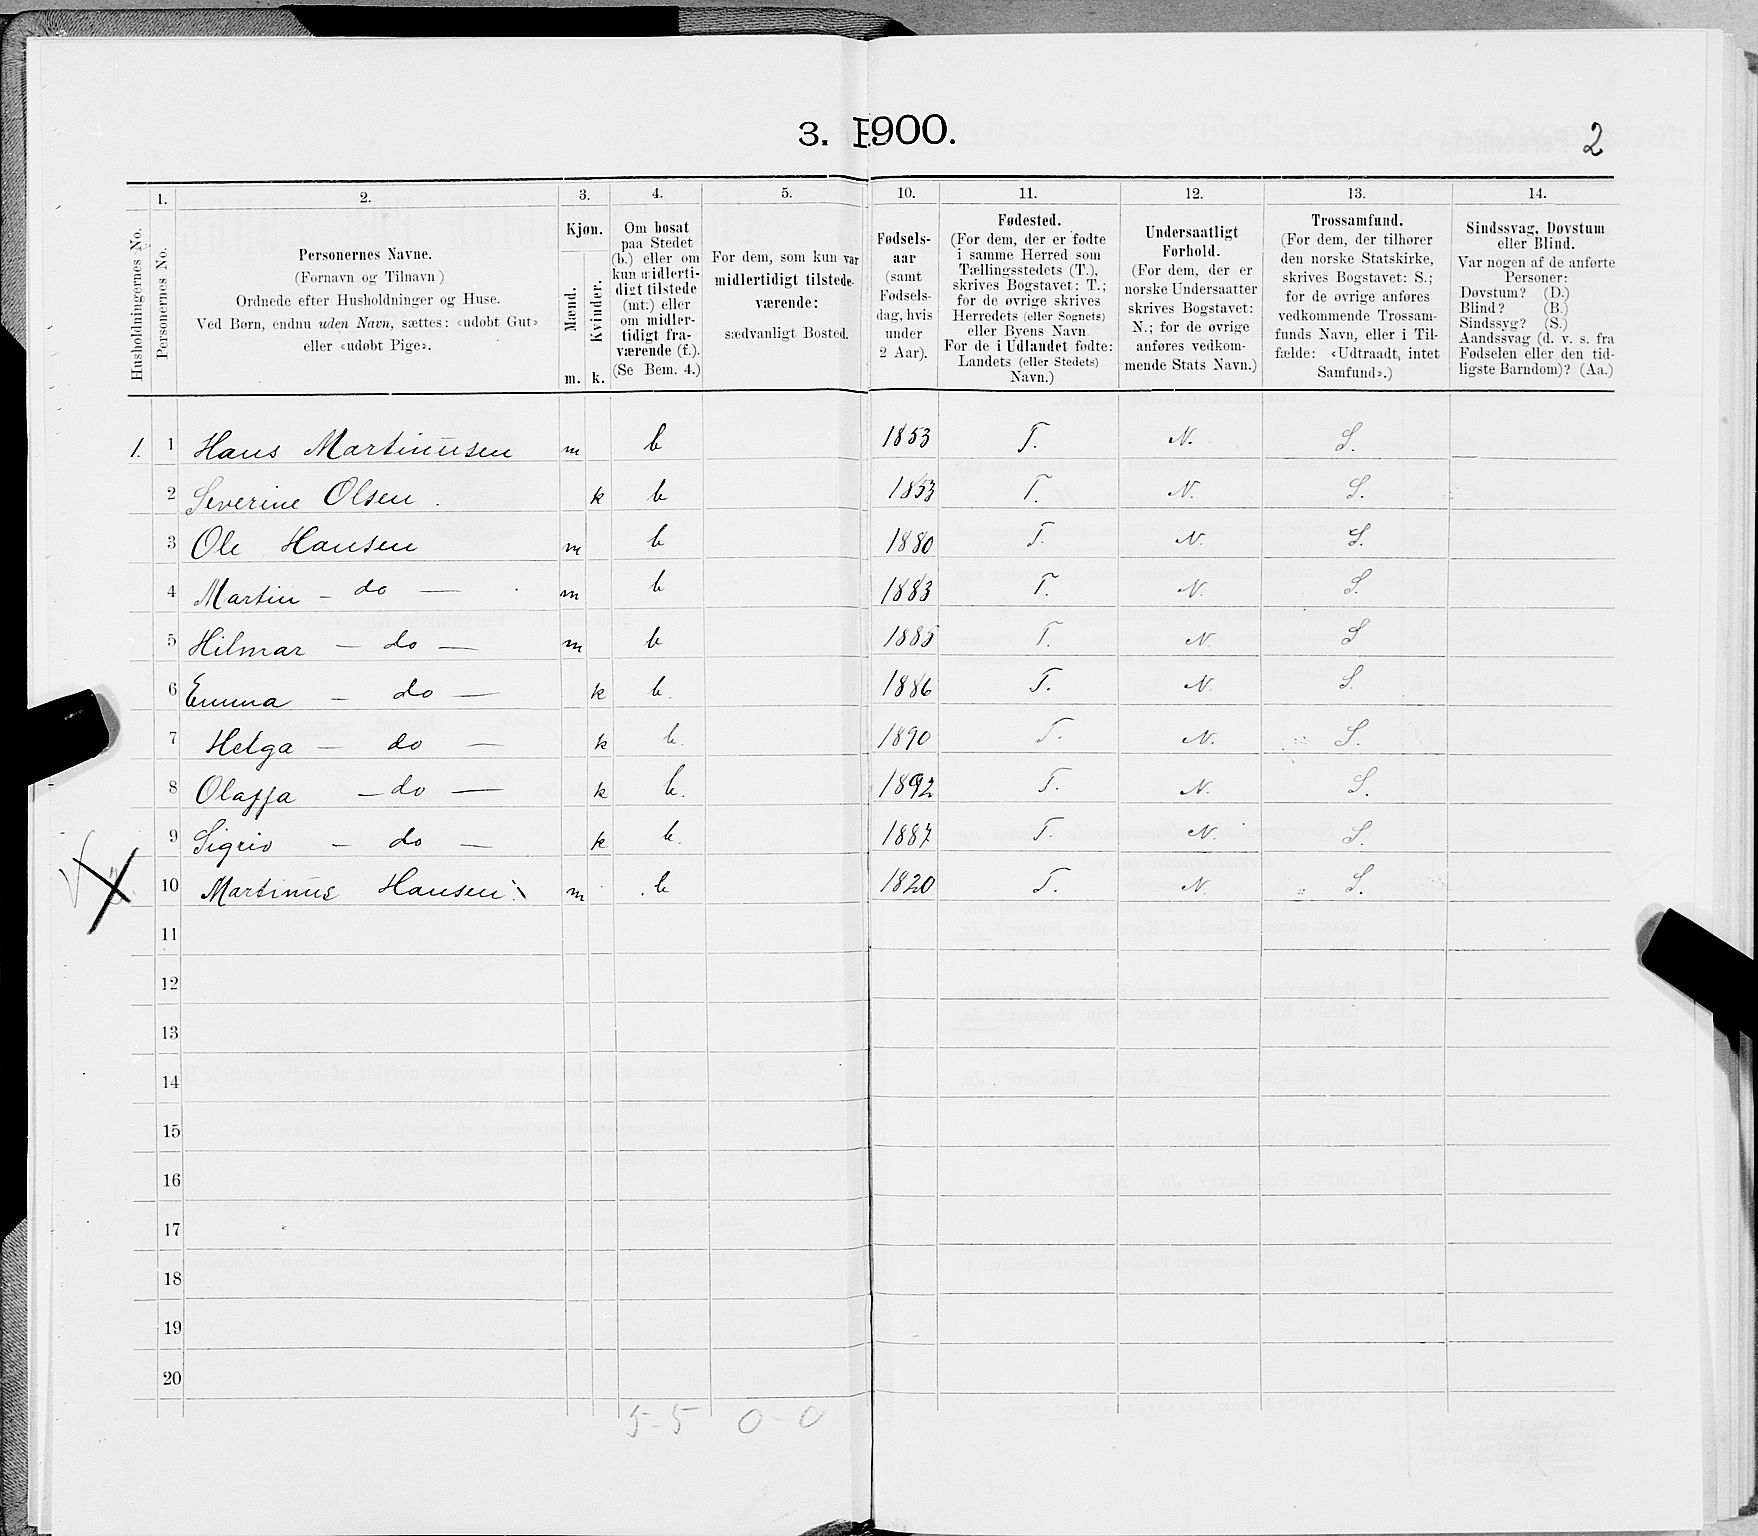 3. 1900.
2
1. 2. 3. 4. 5. 10. 11. 12. 13. 14.
Husholdningernes No.
Personernes No.
Personernes Navne.
(Fornavn og Tilnavn)
Ordnede efter Husholdninger og Huse.
Ved Børn, endnu uden Navn, sættes: «udøbt Gut»
eller «udøbt Pige».
Kjøn.
Mænd.
Kvinder.
m. k.
Om bosat
paa Stedet
(b.) eller om
kun midlerti-
digt tilstede
(mt.) eller
om midler-
tidigt fra-
værende (f.).
(Se Bem. 4.)
For dem, som kun var
midlertidigt tilstede-
værende:
sædvanligt Bosted.
Fødsels-
aar
(samt
Fødsels-
dag, hvis
under
2 Aar).
Fødested.
(For dem, der er fødte
i samme Herred som
Tællingsstedets (T.),
skrives Bogstavet: T.;
for de øvrige skrives
Herredets (eller Sognets)
eller Byens Navn
For de i Udlandet fødte:
Landets (eller Stedets)
Navn.)
Undersaatligt
Forhold.
(For dem, der er
norske Undersaatter
skrives Bogstavet:
N.; for de øvrige
anføres vedkom-
mende Stats Navn.)
Trossamfund.
(For dem, der tilhører
den norske Statskirke,
skrives Bogstavet: S.;
for de øvrige anføres
vedkommende Trossam-
funds Navn, eller i Til-
fælde: «Udtraadt, intet
Samfund».)
Sindssvag, Døvstum
eller Blind.
Var nogen af de anførte
Personer:
Døvstum? (D.)
Blind? (B.)
Sindssyg? (S.)
Aandssvag (d. v. s. fra
Fødselen eller den tid-
ligste Barndom)? (Aa.)
1. 1 Hans Martinusen m b 1853 T. N. S.
2 Severine Olsen . k b 1853 T. N. S.
3 Ole Hansen m b 1880 T. N. S.
4 Martin - do — m b 1883 T. N. S.
5 Hilmar - do — m b 1885 T. N S
6 Emma - do — k b. 1886 T. N. S.
7 Helga - do — k b. 1890 T. N. S.
8 Olaffa - do — k b. 1892 T. N. S.
9 Sigrid - do — k b. 1887 T. N. S.
10 Martinus Hansen m b 1820 T. N. S.
11
12
13
14
15
16
17
18
19
20
5-5 0-0